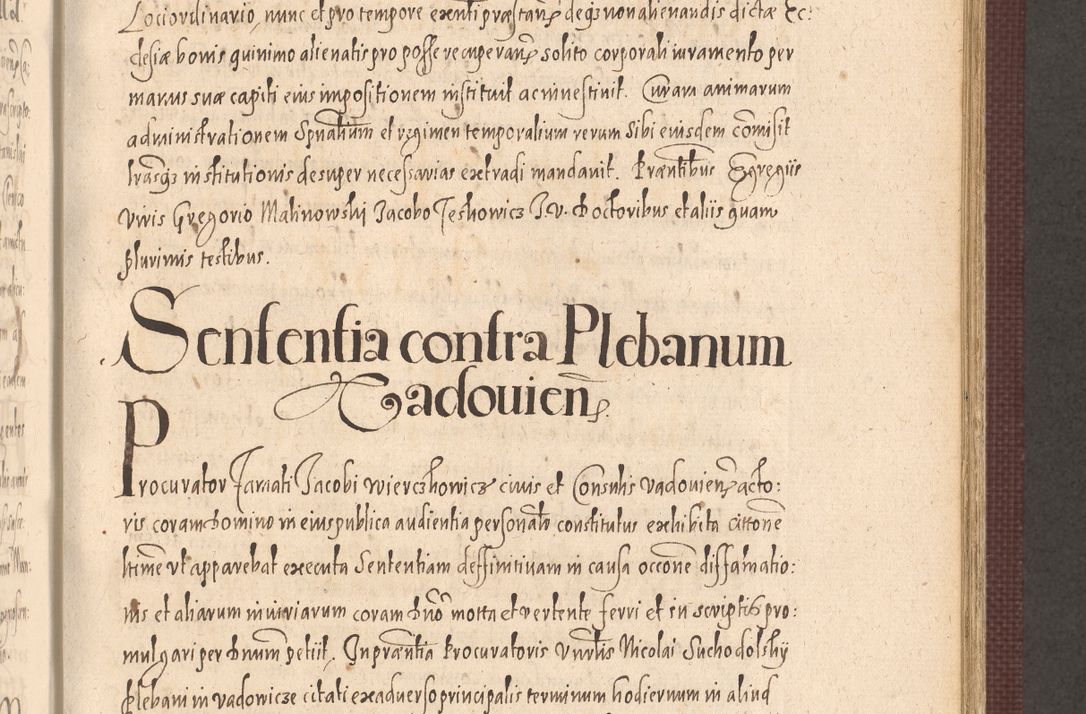 Lociordinario, nunc et pro tempore exnti præstan̄ deq3 non alienandis dictæ Ec:
clesiæ bonis quinimo alienatis pro posse recuperan̄ solito corporali iuramento per
manus suæ capiti eius impositionem instituit ac investivit. Curam animarum
administrationem Spūalium et regimen temporalium rerum sibi eiusdem com̄isit
lrasq3 institutionis desuper necessarias extradi mandavit. Præntibus Egregiis
viris Gregorio Malinowski Jacobo Jeskowicz J.V. Doctoribus et aliis quam
plurimis testibus.
Sententia contra Plebanum
Vadouien̄
Procurator Famati Jacobi Wierczhowicz civis et Consulis Vadouien̄ acto:
ris coram Domino in eius publica audientia personalr constitutus exhibita citatione
ltime ut apparebat executa Sententiam deffinitivam in causa occone diffamatio:
nis et aliarum iniuriarum coram Dno mota et vertente ferri et in scriptis pro:
mulgari per Dnum petiit. In præntia Procuratoris Vnrlis Nicolai Suchodolskÿ
Plebani in Vadowicze citati ex adverso principalis terminum hodiernum in aliud